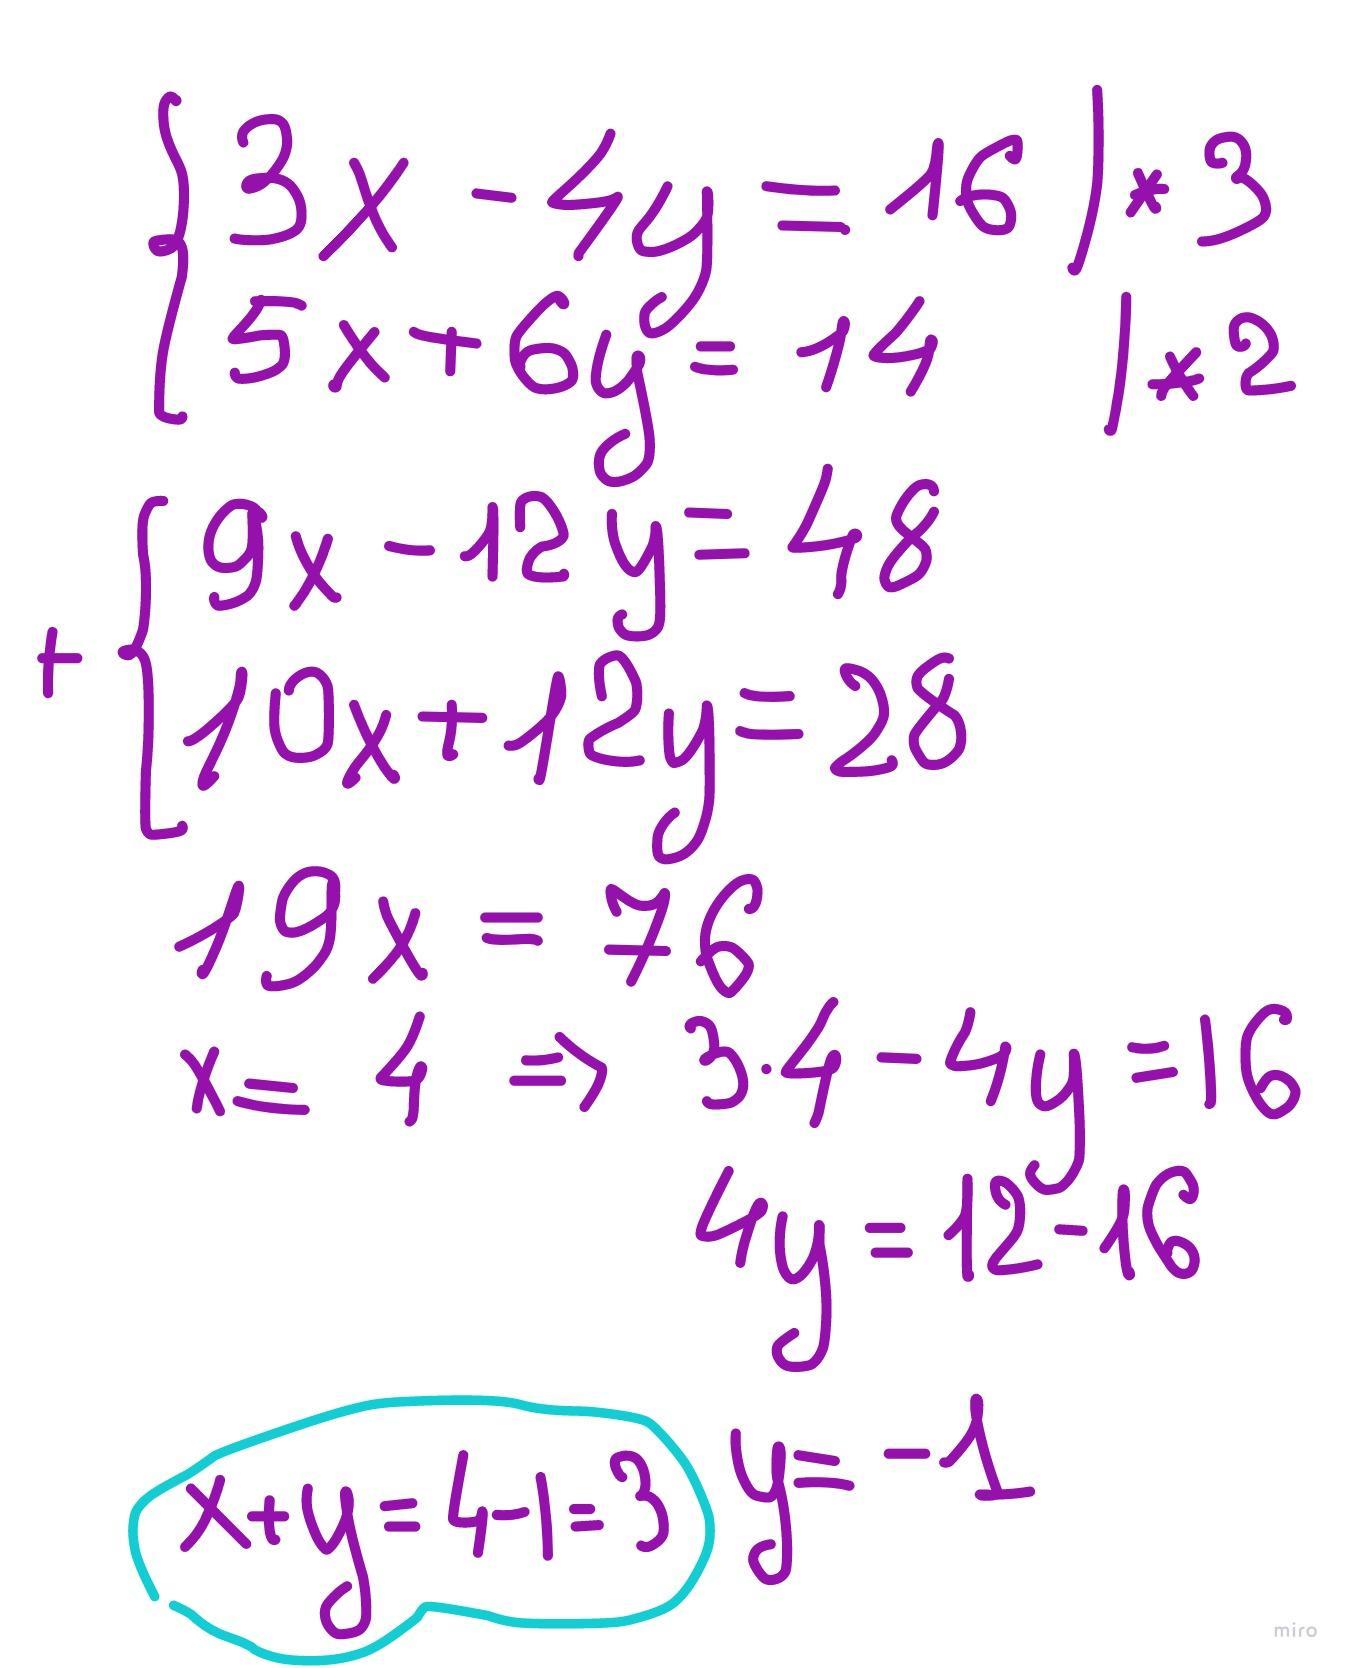 { 3x - 4y = 16 | * 3
5x + 6y = 14 | * 2
+ { 9x - 12y = 48
10x + 12y = 28
19x = 76
x = 4 => 3·4 - 4y = 16
4y = 12 - 16
y = -1
x + y = 4 - 1 = 3
miro